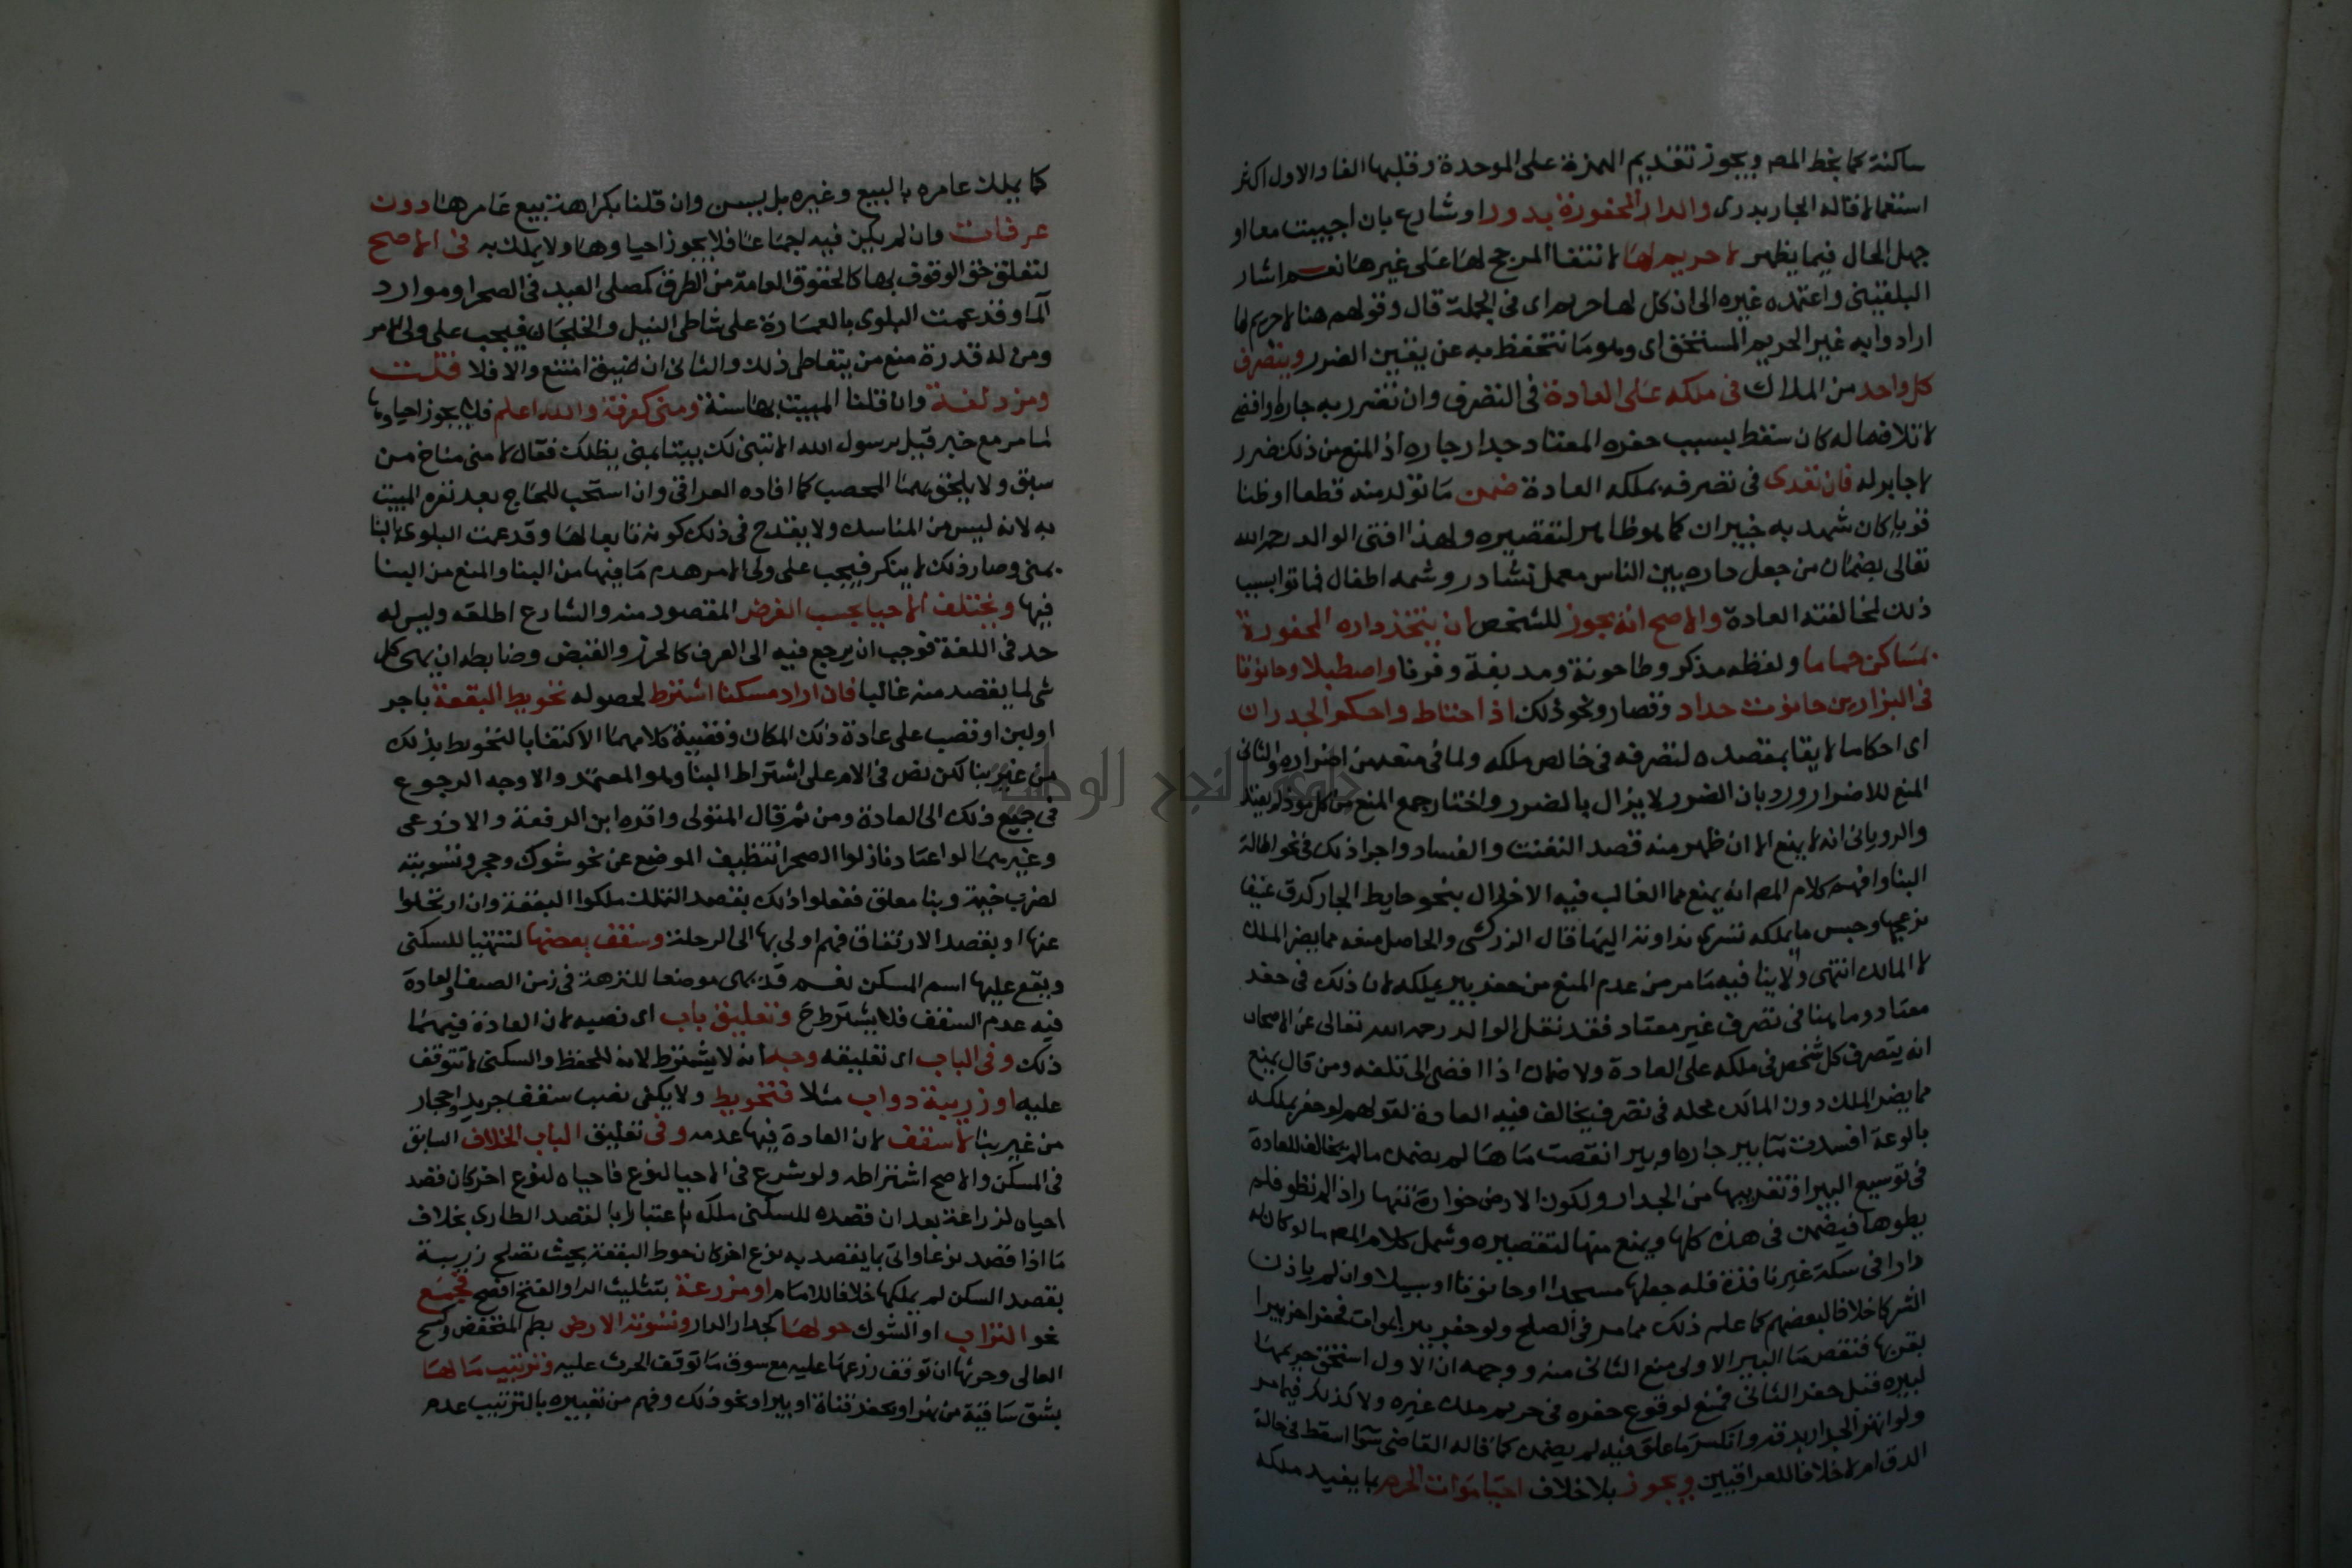 ساكنة كما بخط المص ويجوز تقديم الهمزة على الموحدة وقلبها الفا والاول اكثر
استعمالا قاله الجاربردى والدار المحفورة بدور او شارع بان احييت معا او
جهل الحال فيما يظهر لا حريم لها لانتفا المرجح لها على غيرها نعم اشار
البلقينى واعتمده غيره الى ان كل لها حريم اى فى الجملة قال وقولهم هنا لا حريم لها
ارادوا به غير الحريم المستحق اى وهو ما تتحفظ به عن يقين الضرر ويتصرف
كل واحد من الملاك فى ملكه على العادة فى التصرف وان تضرر به جاره او افضى
لاتلاف ماله كان سقط بسبب حفره المعتاد جدار جاره اذ المنع من ذلك ضرر
لا جابر له فان تعدى فى تصرفه بملكه العادة ضمن ما تولد منه قطعا او ظنا
قويا كان شهد به خبيران كما هو ظاهر لتقصيره ولهذا افتى الوالد رحمه الله
تعالى بضمان من جعل داره بين الناس معمل نشادر وشمه اطفال فماتوا بسبب
ذلك لمخالفته العادة والاصح انه يجوز للشخص ان يتخذ داره المحفورة
بمساكن حماما ولفظه مذكر وطاحونة ومدبغة وفرنا واصطبلا وحانوتا
فى البزازين حانوت حداد وقصار ونحو ذلك اذا احتاط واحكم الجدران
اى احكاما لايقا بمقصده لتصرفه فى خالص ملكه ولما فى منعه من اضراره والثانى
المنع للاضرار ورد بان الضرر لا يزال بالضرر واختار جمع المنع من كل موذ لم يعتد
والرويانى انه لا يمنع الا ان ظهر منه قصد التعنت والفساد واجرا ذلك فى نحو اطالة
البنا وافهم كلام المص انه يمنع مما الغالب فيه الاخلال بنحو حايط الجار كدق عنيف
يزعجها وحبس ما بملكه تسرى نداوته اليها قال الزركشى والحاصل منعه مما يضر الملك
لا المالك انتهى ولا ينا فيه ما مر من عدم المنع من حفر بير بملكه لان ذلك فى حفر
معتاد وما هنا فى تصرف غير معتاد فقد نقل الوالد رحمه الله تعالى عن الاصحاب
انه يتصرف كل شخص فى ملكه على العادة ولا ضمان اذا افضى الى تلف ومن قال يمنع
مما يضر الملك دون المالك محله فى تصرف يخالف فيه العادة لقولهم لو حفر بملكه
بالوعة افسدت ما بير جاره او بير انقصت ماها لم يضمن ما لم يخالف العادة
فى توسيع البير او تقريبها من الجدار ولكون الارض خوارة تنهار اذا لم تطو فلم
يطوها فيضمن فى هذه كلها ويمنع منها لتقصيره وشمل كلام المص ما لو كان له
دار فى سكة غير نافذة فله جعلها مسجدا او حانوتا او سبيلا وان لم ياذن
الشركا خلافا لبعضهم كما علم ذلك مما مر فى الصلح ولو حفر بيرا بموات فحفر اخر بيرا
بقربها فنقص ما البير الاولى منع الثانى منه ووجهه ان الاول استحق حريمها
لبيره قبل حفر الثانى فمنع لوقوع حفره فى حريم ملك غيره ولا كذلك فيما مر
ولو اهتز الجدار بدقه وانكسر ما علق فيه لم يضمن كما قاله القاضى سوا اسقط فى حالة
الدق ام لا خلافا للعراقيين ويجوز بلا خلاف احيا موات الحرم بما يفيد ملكه
كما يملك عامره بالبيع وغيره بل يسن وان قلنا بكراهة بيع عامرها دون
عرفات وان لم يكن فيه اجماعا فلا يجوز احياوها ولا يملك به فى الاصح
لتعلق حق الوقوف بها كالحقوق العامة من الطرق كمصلى العيد فى الصحرا وموارد
الما وقد عمت البلوى بالعمارة على شاطى النيل والخلجان فيجب على ولى الامر
ومن له قدرة منع من يتعاطى ذلك والثانى ان ضيق امتنع والا فلا قلت
ومزدلفة وان قلنا المبيت بها سنة ومنى كعرفة والله اعلم فلا يجوز احياوها
لما مر مع خبر قيل يرسول الله الا نبنى لك بيتا بمنى يظلك فقال لا منى مناخ من
سبق ولا يلحق بهما المحصب كما افاده العراقى وان استحب للحاج بعد نفره المبيت
به لانه ليس من المناسك ولا يقدح فى ذلك كونه تابعا لها وقد عمت البلوى بالبنا
بمنى وصار ذلك لا ينكر فيجب على ولى الامر هدم ما فيها من البنا والمنع من البنا
فيها ويختلف الاحيا بحسب الغرض المقصود منه والشارع اطلقه وليس له
حد فى اللغة فوجب ان يرجع فيه الى العرف كالحرز والقبض وضابطه ان يهى كل
شى لما يقصد منه غالبا فان اراد مسكنا اشترط لحصوله تحويط البقعة باجر
او لبن او قصب على عادة ذلك المكان وقضية كلامهما الاكتفا بالتحويط بذلك
من غير بنا لكن نص فى الام على اشتراط البنا وهو المعتمد والاوجه الرجوع
فى جميع ذلك الى العادة ومن ثم قال المتولى واقره ابن الرفعة والاذرعى
وغيرهما لو اعتاد نازلوا الصحرا تنظيف الموضع عن نحو شوك وحجر وتسويته
لضرب خيمة وبنا معلق ففعلوا ذلك بقصد التملك ملكوا البقعة وان ارتحلوا
عنها او بقصد الارتفاق فهم اولى بها الى الرحلة وسقف بعضها لتتهيا للسكنى
ويقع عليها اسم المسكن نعم قد يهى موضعا للنزهة فى زمن الصيف والعادة
فيه عدم السقف فلا يشترط ح وتعليق باب اى نصبه لان العادة فيهما
ذلك وفى الباب اى تعليقه وجه انه لا يشترط لانه للحفظ والسكنى لا تتوقف
عليه او زريبة دواب مثلا فتحويط ولا يكفى نصب سقف جريد واحجار
من غير بنا لا سقف لان العادة فيها عدمه وفى تعليق الباب الخلاف السابق
فى المسكن والاصح اشتراطه ولو شرع فى الاحيا لنوع فاحياه لنوع اخر كان قصد
احياه لزراعة بعد ان قصده للسكنى ملكه باعتبار ا بالقصد الطارى بخلاف
ما اذا قصد نوعا واتى بما يقصد به نوع اخر كان حوط البقعة بحيث تصلح زريبة
بقصد السكن لم يملكها خلافا للامام او مزرعة بتثليث الرا والفتح افصح فجمع
نحو التراب او الشوك حولها كجدار الدار وتسوية الارض بطم المنخفض وكسح
العالى وحرثها ان توقف زرعها عليه مع سوق ما توقف الحرث عليه وترتيب ما لها
بشق ساقية من نهر او بحفر قناة او بير او نحو ذلك وفهم من تعبيره بالترتيب عدم
جامعة النجاح الوطنية